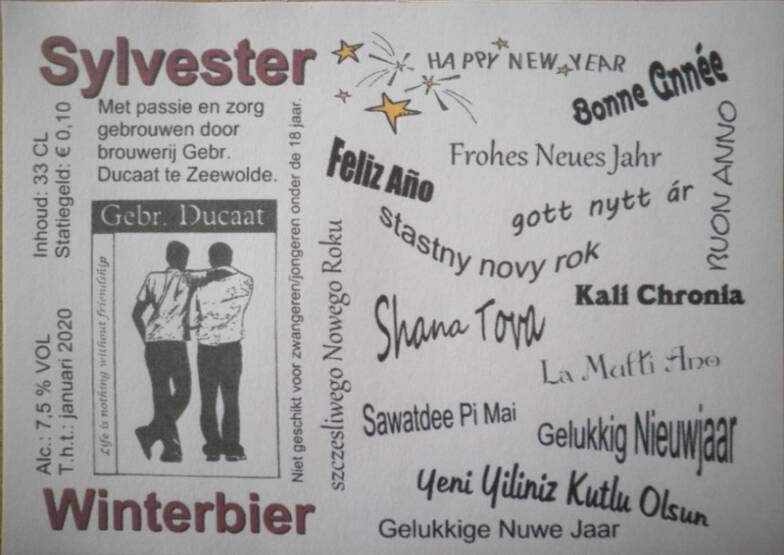 Sylvester
Met passie en zorg
gebrouwen door
brouwerij Gebr.
Ducaat te Zeewolde.
Inhoud: 33 CL
Statiegeld: € 0,10
Alc.: 7,5 % VOL
T.h.t.: januari 2020
Gebr. Ducaat
Life is nothing without friendship
Niet geschikt voor zwangeren/jongeren onder de 18 jaar.
Winterbier
HAPPY NEW YEAR
Bonne Année
Feliz Año
Frohes Neues Jahr
BUON ANNO
gott nytt ár
stastny novy rok
szczesliwego Nowego Roku
Kali Chronia
Shana Tova
La Multi Ano
Sawatdee Pi Mai
Gelukkig Nieuwjaar
Yeni Yiliniz Kutlu Olsun
Gelukkige Nuwe Jaar